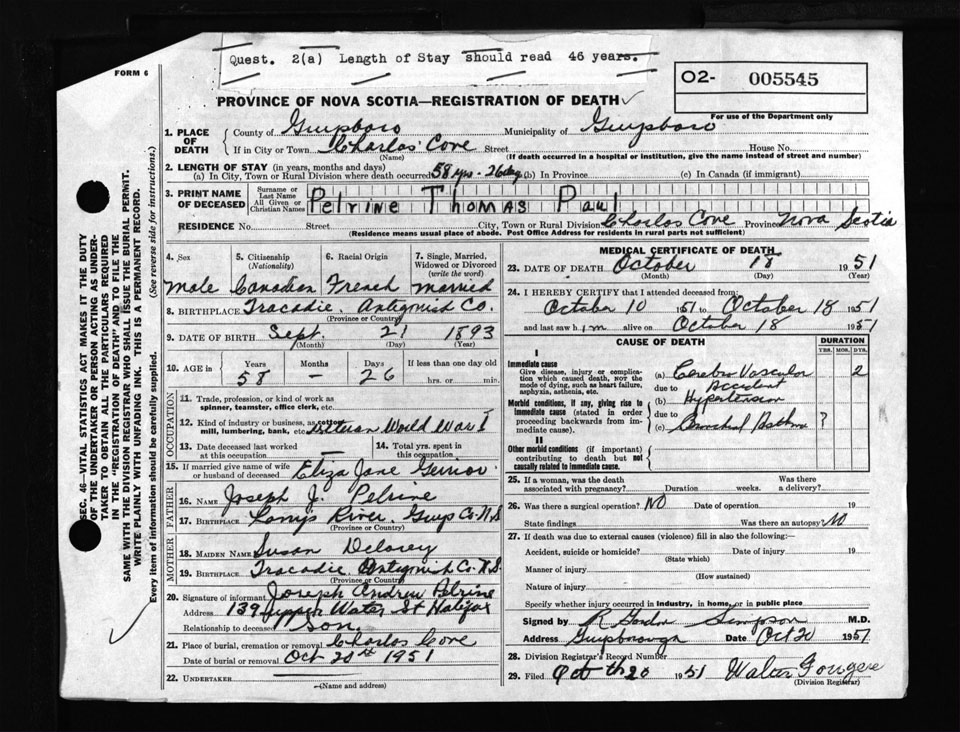 Quest. 2(a) Length of Stay should read 46 years.
FORM 6
O2- 005545
For use of the Department only
PROVINCE OF NOVA SCOTIA—REGISTRATION OF DEATH
1. PLACE OF DEATH County of Guysboro Municipality of Guysboro
If in City or Town Charlos Cove Street House No.
(Name) (If death occurred in a hospital or institution, give the name instead of street and number)
2. LENGTH OF STAY (in years, months and days)
(a) In City, Town or Rural Division where death occurred 58 yrs - 26 days (b) In Province (c) In Canada (if immigrant)
3. PRINT NAME OF DECEASED Surname or Last Name All Given or Christian Names Pelrine Thomas Paul
RESIDENCE No. Street City, Town or Rural Division Charlos Cove Province Nova Scotia
(Residence means usual place of abode. Post Office Address for residents in rural parts not sufficient)
4. Sex 5. Citizenship (Nationality) 6. Racial Origin 7. Single, Married, Widowed or Divorced (write the word)
Male Canadian French Married
8. BIRTHPLACE Tracadie Antigonish Co.
(Province or Country)
9. DATE OF BIRTH Sept. 21 1893
(Month) (Day) (Year)
10. AGE in Years Months Days If less than one day old
58 – 26 hrs. or min.
OCCUPATION
11. Trade, profession, or kind of work as spinner, teamster, office clerk, etc.
12. Kind of industry or business, as cotton mill, lumbering, bank, etc. Veteran World War I
13. Date deceased last worked at this occupation 14. Total yrs. spent in this occupation
15. If married give name of wife or husband of deceased Eliza Jane Gerrior
FATHER
16. NAME Joseph J. Pelrine
17. BIRTHPLACE Larrys River Guys Co. N.S
(Province or Country)
MOTHER
18. MAIDEN NAME Susan Delorey
19. BIRTHPLACE Tracadie Antigonish Co. N.S.
(Province or Country)
20. Signature of informant Joseph Andrew Pelrine
Address 139 Upper Water St Halifax
Relationship to deceased Son.
21. Place of burial, cremation or removal Charlos Cove
Date of burial or removal Oct 20th 1951
22. UNDERTAKER
(Name and address)
MEDICAL CERTIFICATE OF DEATH
23. DATE OF DEATH October 18 1951
(Month) (Day) (Year)
24. I HEREBY CERTIFY that I attended deceased from:
October 10 1951 to October 18 1951
and last saw him alive on October 18 1951
CAUSE OF DEATH DURATION
YRS. MOS. DYS.
I
Immediate cause
Give disease, injury or complication which caused death, NOT the mode of dying, such as heart failure, asphyxia, asthenia, etc.
(a) Cerebro Vascular 2
due to Accident
Morbid conditions, if any, giving rise to immediate cause (stated in order proceeding backwards from immediate cause).
(b) Hypertension
due to
(c) Bronchial Asthma ?
II
Other morbid conditions (if important) contributing to death but not causally related to immediate cause.
25. If a woman, was the death associated with pregnancy? Duration weeks. Was there a delivery?
26. Was there a surgical operation? NO Date of operation 19
State findings Was there an autopsy? NO
27. If death was due to external causes (violence) fill in also the following:—
Accident, suicide or homicide? Date of injury 19
(State which)
Manner of injury
(How sustained)
Nature of injury
Specify whether injury occurred in industry, in home, or in public place
Signed by R Gordon Simpson M.D.
Address Guysborough Date Oct 20 1951
28. Division Registrar's Record Number
29. Filed Oct th 20 1951 Walter Fougere
(Division Registrar)
SEC. 46—VITAL STATISTICS ACT MAKES IT THE DUTY
OF THE UNDERTAKER OR PERSON ACTING AS UNDERTAKER
TO OBTAIN ALL THE PARTICULARS REQUIRED
IN THE "REGISTRATION OF DEATH" AND TO FILE THE
SAME WITH THE DIVISION REGISTRAR WHO SHALL ISSUE THE BURIAL PERMIT.
WRITE PLAINLY WITH UNFADING INK. THIS IS A PERMANENT RECORD.
Every item of information should be carefully supplied. (See reverse side for instructions.)